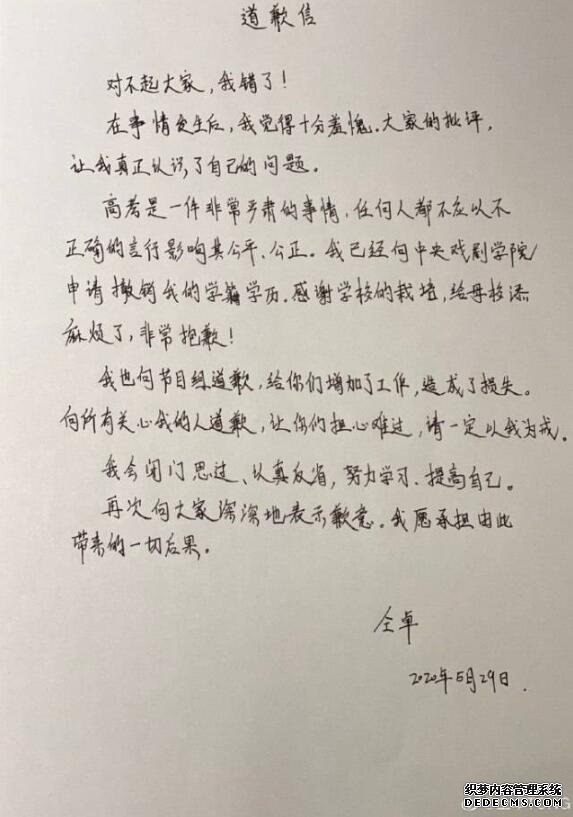 道歉信
对不起大家，我错了！
在事情发生后，我觉得十分羞愧。大家的批评，
让我真正认识了自己的问题。
高考是一件非常严肃的事情，任何人都不应以不
正确的言行影响其公平、公正。我已经向中央戏剧学院
申请撤销我的学籍学历。感谢学校的栽培，给母校添
麻烦了，非常抱歉！
我也向节目组道歉，给你们增加了工作，造成了损失。
向所有关心我的人道歉，让你们担心难过，请一定以我为戒。
我会闭门思过、认真反省，努力学习、提高自己。
再次向大家深深地表示歉意。我愿承担由此
带来的一切后果。
仝卓
2020年5月29日.
织梦内容管理系统
DEDECMS.COM